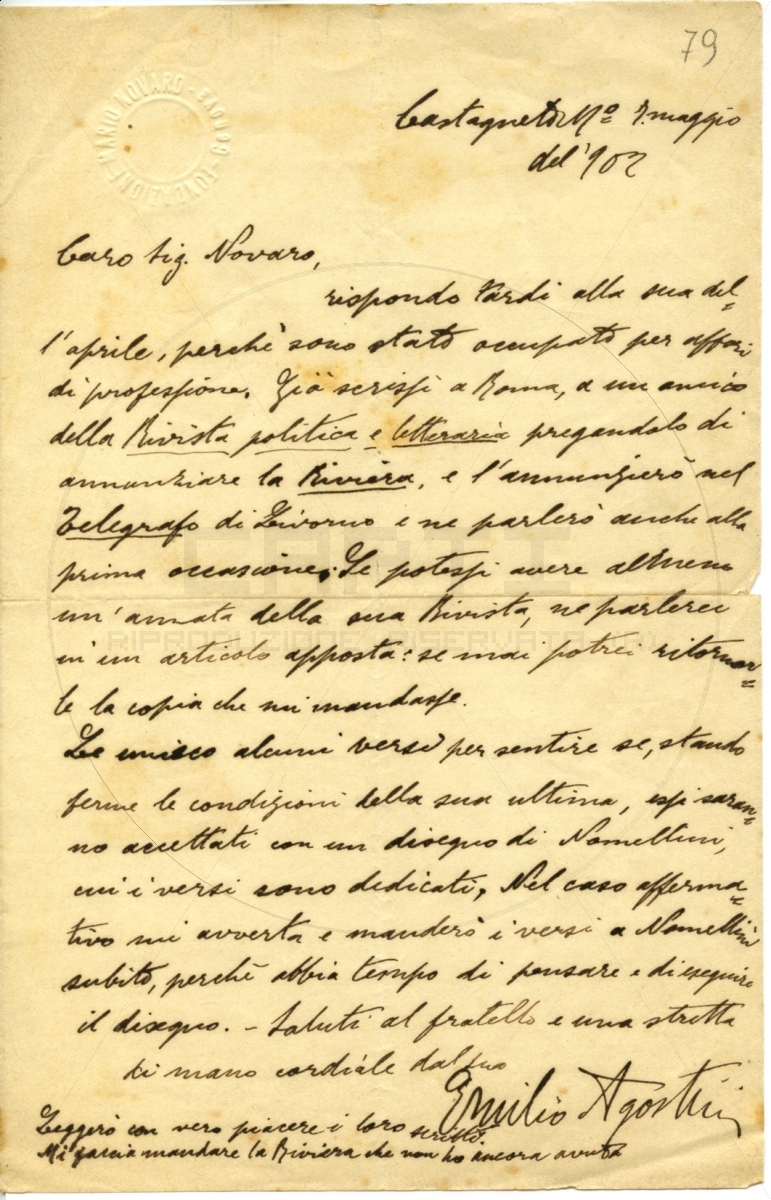 79
FONDAZIONE MARIO NOVARO
Castagneto Mº 7 maggio
del '902
Caro Sig. Novaro,
rispondo tardi alla sua del=
l'aprile, perchè sono stato occupato per affari
di professione. Già scrissi a Roma, a un amico
della Rivista politica e letteraria pregandolo di
annunziare la Riviera, e l'annunzierò nel
Telegrafo di Livorno e ne parlerò anche alla
prima occasione. Se potessi avere almeno
un'annata della sua Rivista, ne parlerei
in un articolo apposta: se mai potrei ritornar=
le la copia che mi mandasse.
Le unisco alcuni versi per sentire se, stando
ferme le condizioni della sua ultima, essi saran=
no accettati con un disegno di Nomellini,
cui i versi sono dedicati. Nel caso afferma=
tivo mi avverta e manderò i versi a Nomellini
subito, perchè abbia tempo di pensare e di eseguire
il disegno. - Saluti al fratello e una stretta
di mano cordiale dal suo
Emilio Agostini
Leggerò con vero piacere i loro scritti.
Mi faccia mandare la Riviera che non ho ancora avuta